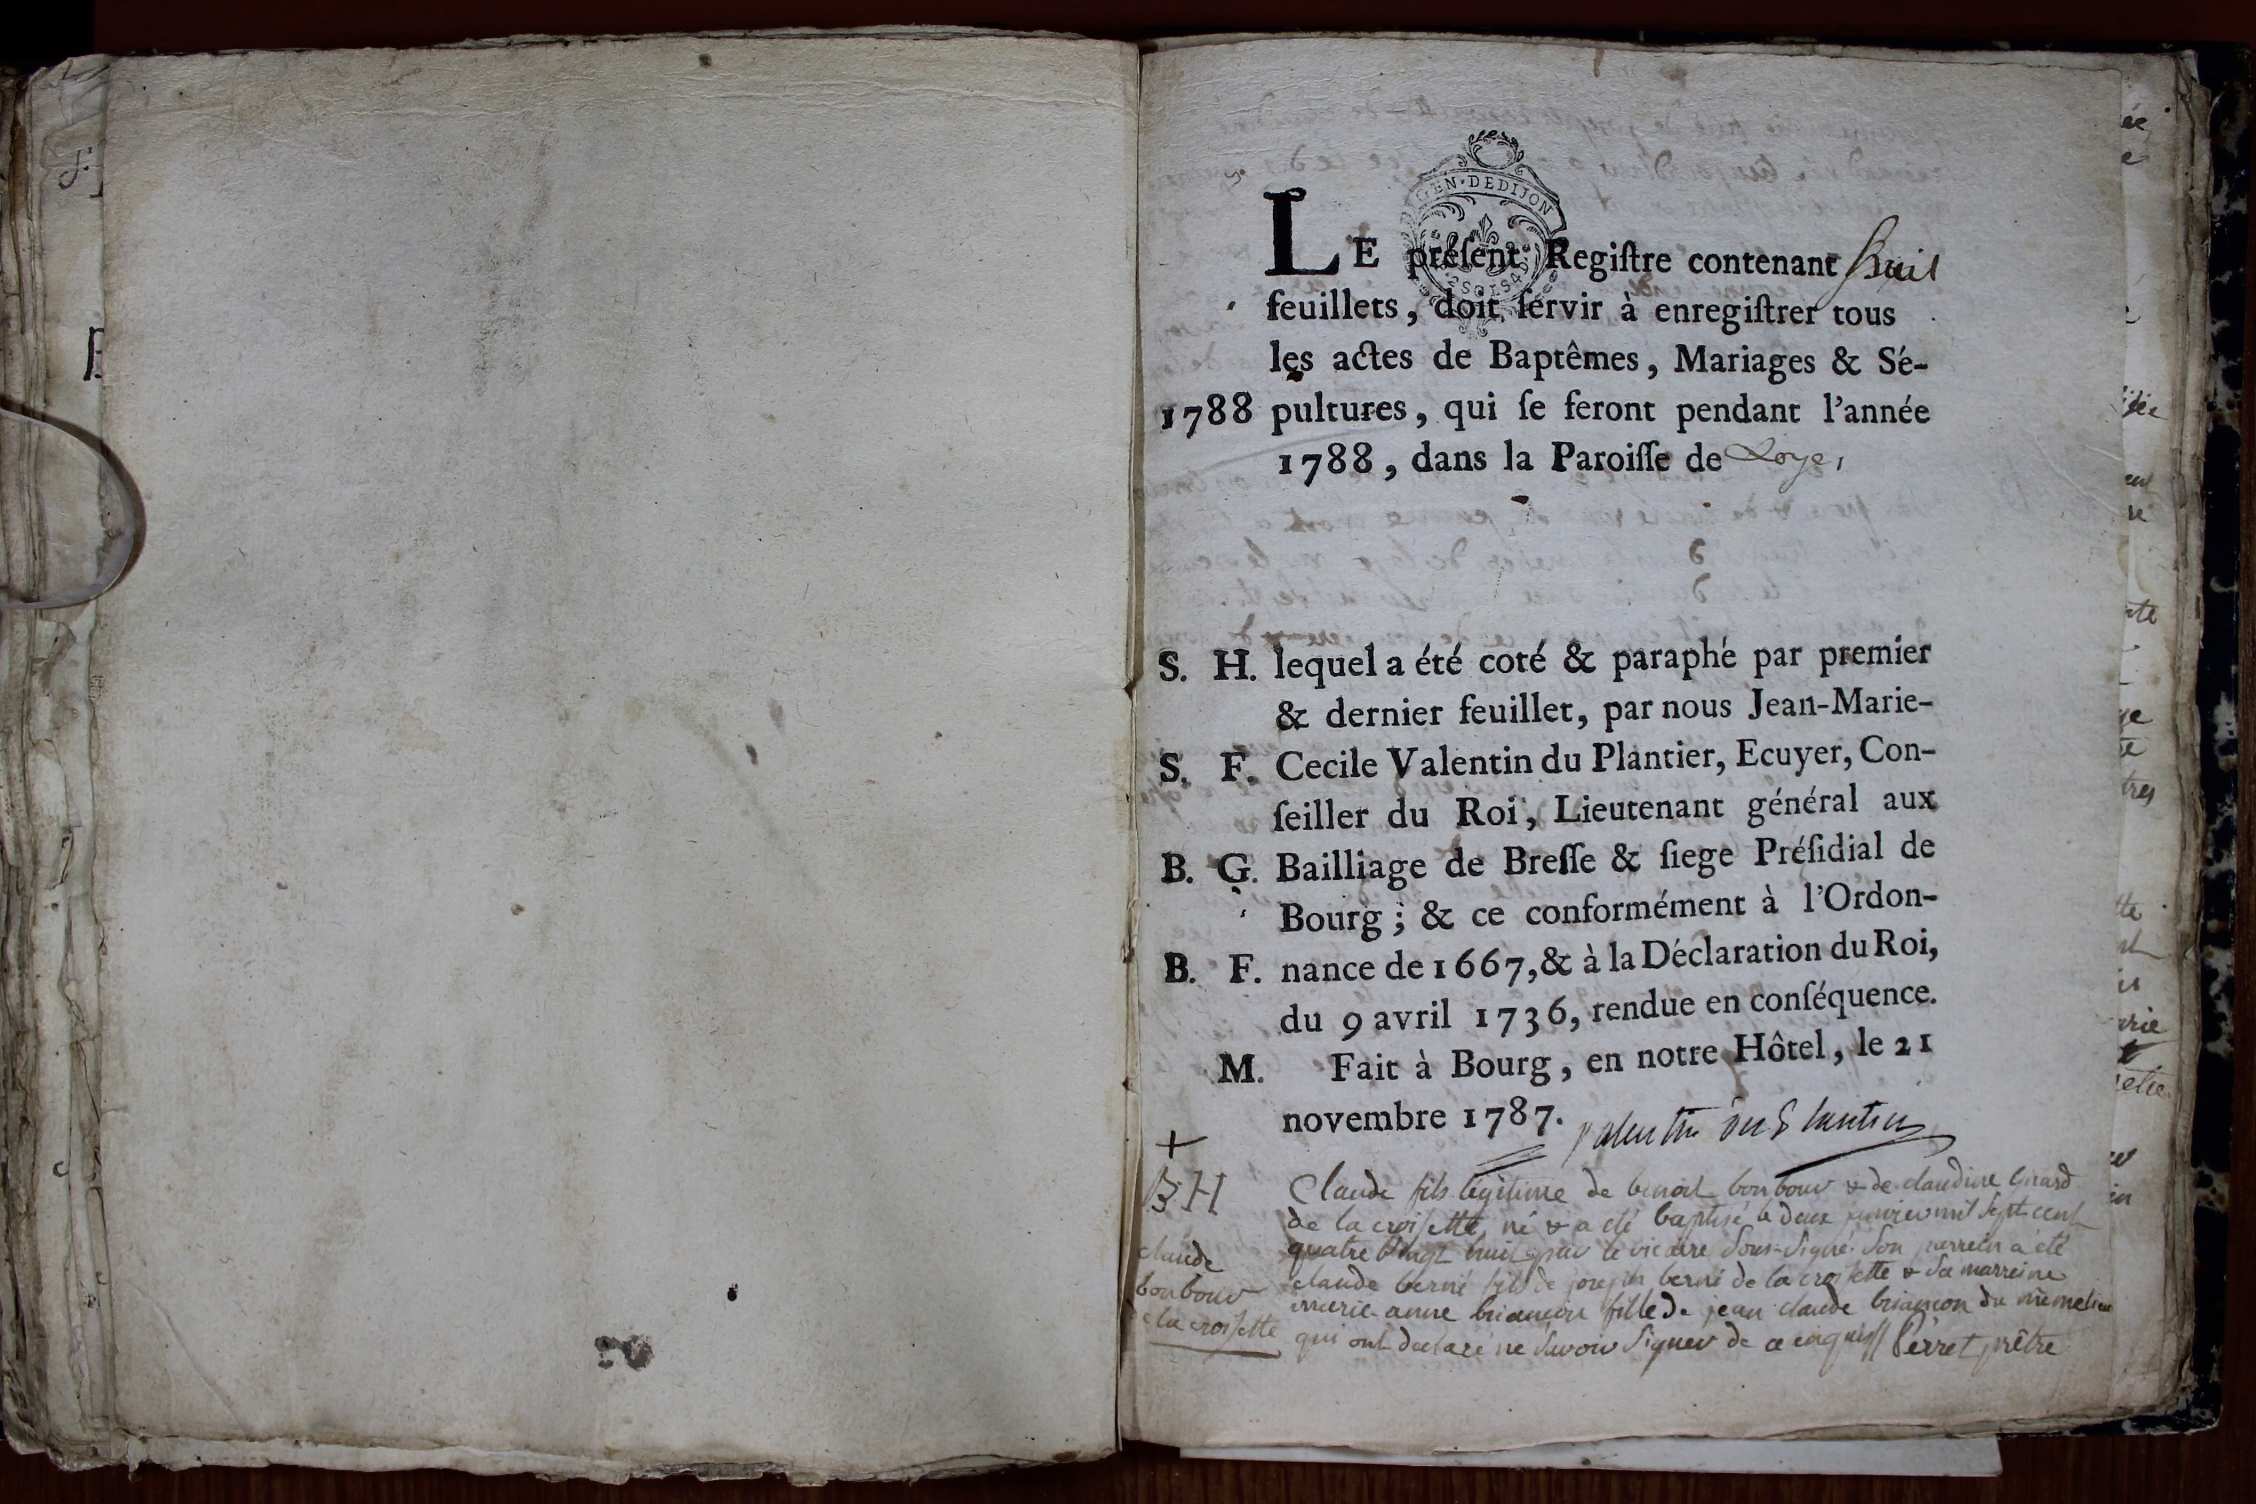 GEN·DEDIJON
LE préſent Regiſtre contenant huit
feuillets, doit ſervir à enregiſtrer tous
les actes de Baptêmes, Mariages & Sé-
1788 pultures, qui ſe feront pendant l'année
1788, dans la Paroiſſe de Loye,
S. H. lequel a été coté & paraphé par premier
& dernier feuillet, par nous Jean-Marie-
S. F. Cecile Valentin du Plantier, Ecuyer, Con-
ſeiller du Roi, Lieutenant général aux
B. G. Bailliage de Breſſe & ſiege Préſidial de
Bourg ; & ce conformément à l'Ordon-
B. F. nance de 1667, & à la Déclaration du Roi,
du 9 avril 1736, rendue en conſéquence.
M. Fait à Bourg, en notre Hôtel, le 21
novembre 1787. Valentin du Plantier
+
B H
claude
bonbour
de la croisette
Claude fils légitime de benoit bonbour & de claudine
de la croisette, né & a été baptisé le deux janvier mil sept cent
quatre vingt huit par le vicaire sous-signé. Son parrein a été
claude berné fils de joseph berné de la croisette & sa marreine
marie-anne briançon fille de jean claude briançon du même lieu
qui ont déclaré ne savoir signer de ce enquis Perret prêtre